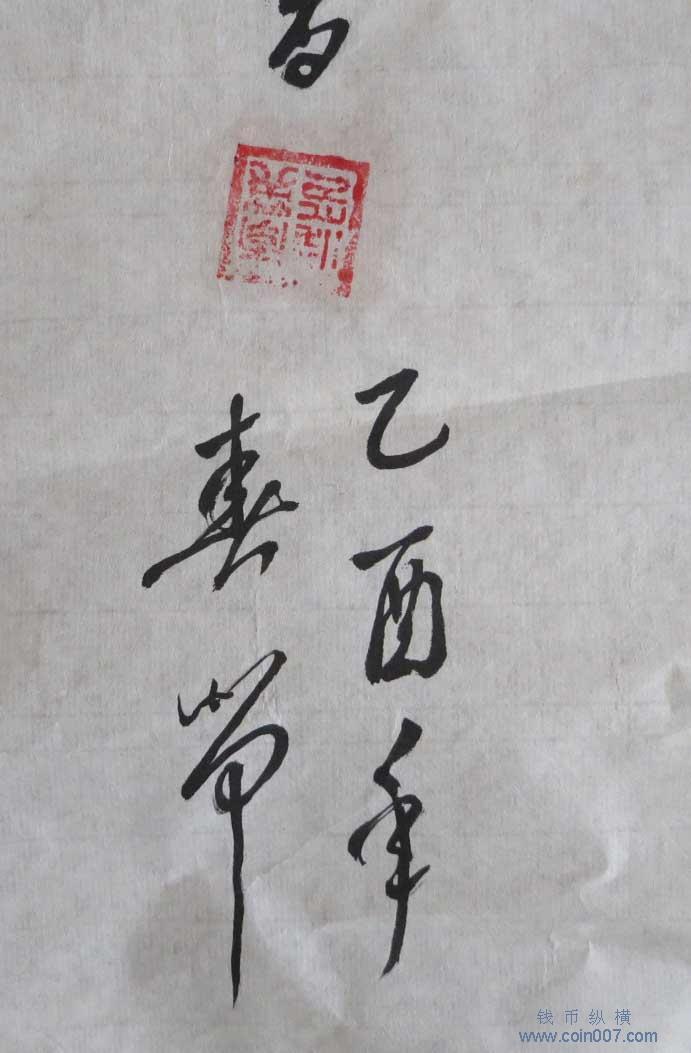 乙酉年
春节
钱币纵横
www.coin007.com